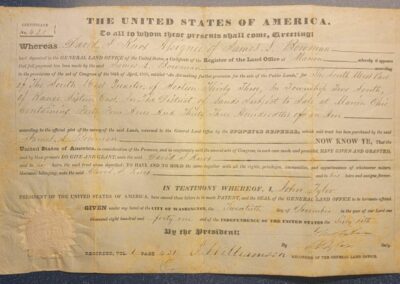 THE UNITED STATES OF AMERICA.
CERTIFICATE
No.
To all to whom these presents shall come, Greeting:
Whereas David J. Assignee of James S. Bowman
has deposited in the GENERAL LAND OFFICE of the United States, a Certificate of the Register of the Land Office at Marion whereby it appears
that full payment has been made by the said James S. Bowman according
to the provisions of the act of Congress of the 24th of April, 1820, entitled "An act making further provision for the sale of the Public Lands," for The South West Part
of The South East Quarter of Section Thirty Three, in Township Two South,
of Range Sixteen East, in The District of Lands Subject to Sale at Marion Ohio
Containing Forty Four Acres and Thirty Three Hundredths of an Acre
according to the official plat of the survey of the said Lands, returned to the General Land Office by the SURVEYOR GENERAL, which said tract has been purchased by the said
James S. Bowman NOW KNOW YE, That the
United States of America, in consideration of the Premises, and in conformity with the several acts of Congress, in such case made and provided, HAVE GIVEN AND GRANTED,
and by these presents DO GIVE AND GRANT, unto the said David J.
and to his heirs, the said tract above described: TO HAVE AND TO HOLD the same, together with all the rights, privileges, immunities, and appurtenances of whatsoever nature,
thereunto belonging, unto the said David J. and to his heirs and assigns forever.
IN TESTIMONY WHEREOF, I, John Tyler
PRESIDENT OF THE UNITED STATES OF AMERICA, have caused these Letters to be made PATENT, and the SEAL of the GENERAL LAND OFFICE to be hereunto affixed.
GIVEN under my hand, at the CITY OF WASHINGTON, the Twentieth day of December in the year of our Lord one
thousand eight hundred and forty one and of the INDEPENDENCE OF THE UNITED STATES the Sixty sixth
By the President:
By
RECORDED, VOL PAGE
J. Williamson RECORDER OF THE GENERAL LAND OFFICE.